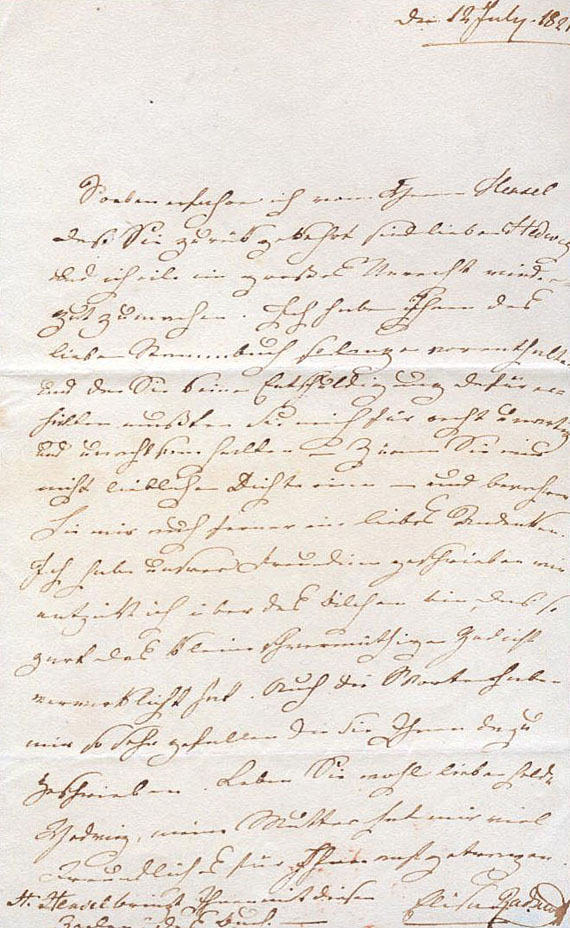 Den 12 July. 182
Soeben erfahre ich vom Herrn Hensel
daß Sie zurük gekehrt sind lieber Hedwig
und ich eile ein großes Unrecht wieder
gut zumachen. Ich habe Ihnen das
liebe Stammbuch so lange vorenthalten
und da Sie keine Entschuldigung dafür er-
hielten mußten Sie mich für recht unartig
und halten – Zürnen Sie mir
nicht liebliche Dichterinn – und bewahren
Sie mir auch ferner ein liebes Andenken.
Ich habe unsrer Freundinn geschrieben wie
entzükt ich über das Bildchen bin, das so
zart das kleine schwermüthige Gedicht
verwirklicht hat. Auch die Worte haben
mir so sehr gefallen die Sie Ihnen dazu
geschrieben. Leben Sie wohl liebe holde
Hedwig, meine Mutter hat mir viel
Freundliches für Ihnen aufgetragen.
H. Hensel bringt Ihnen mit diesen Elisa Radziwill
Zeilen das Buch. —